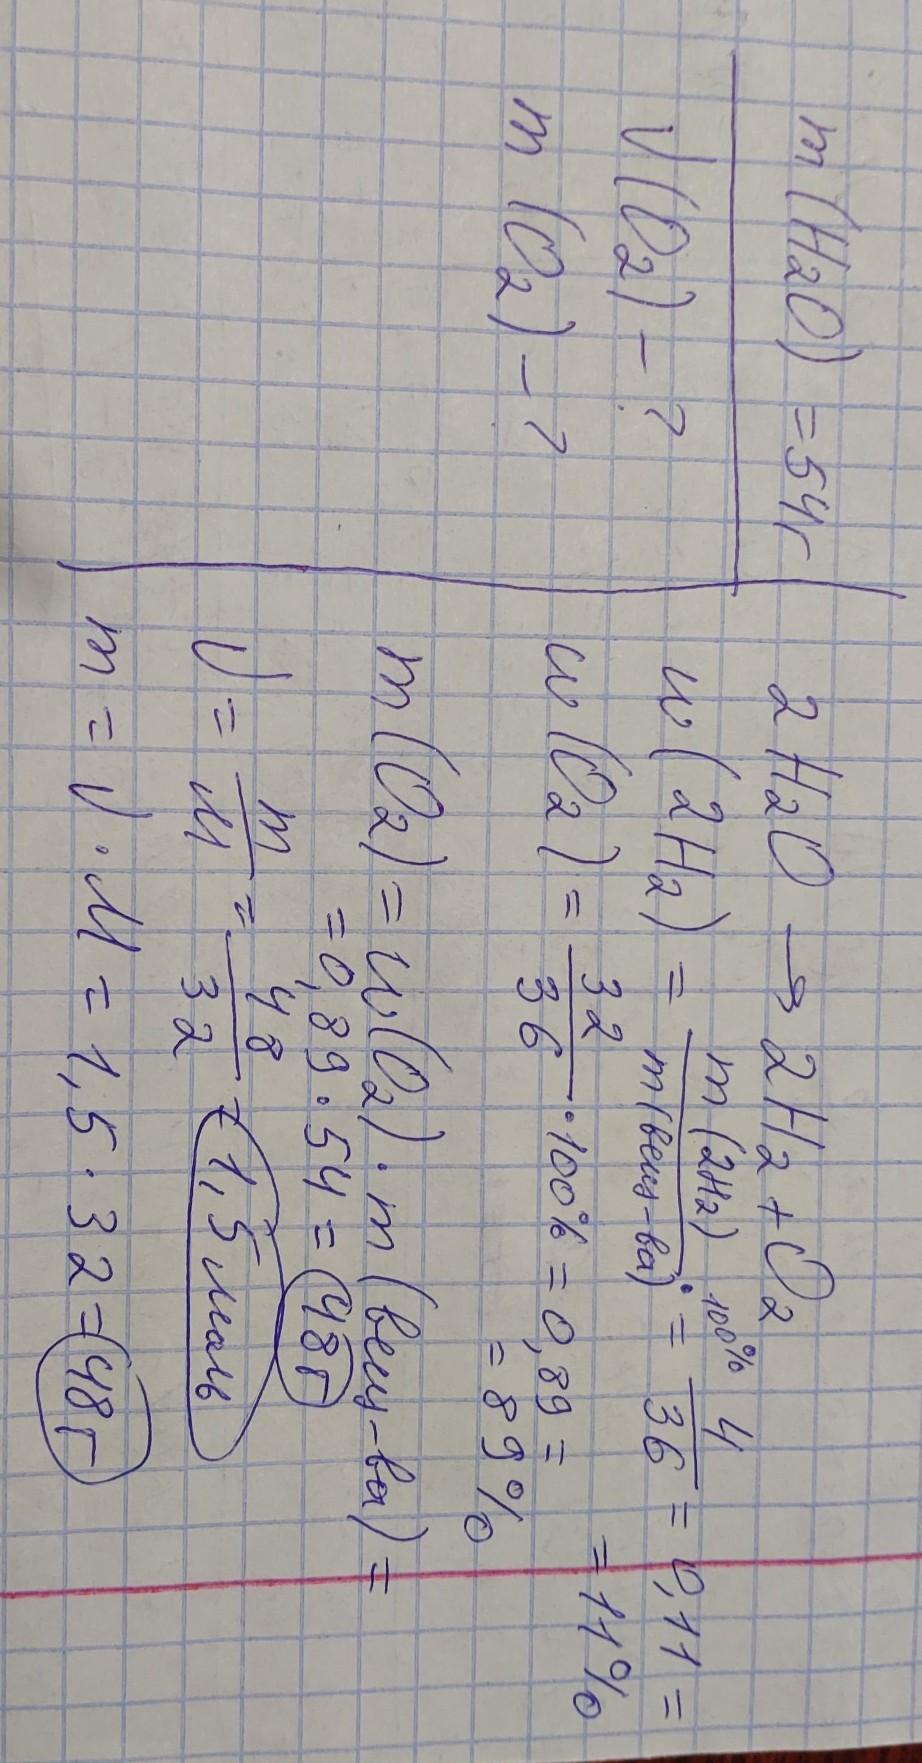 m(H2O) = 54г
ν(O2) - ?
m(O2) - ?
2H2O → 2H2 + O2
w(2H2) = m(2H2) / m(вещ-ва) · 100% = 4/36 = 0,11 =
= 11%
w(O2) = 32/36 · 100% = 0,89 =
= 89%
m(O2) = w(O2) · m(вещ-ва) =
= 0,89 · 54 = 48г
ν = m/M = 48/32 = 1,5 моль
m = ν · M = 1,5 · 32 = 48г